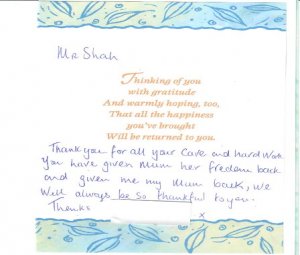 Mr Shah
Thinking of you
with gratitude
And warmly hoping, too,
That all the happiness
you've brought
Will be returned to you.
Thankyou for all your Care and hard Work
You have given Mum her fredom back
and given me my Mum back, we
Will always be so thankful to you.
Thanks
x